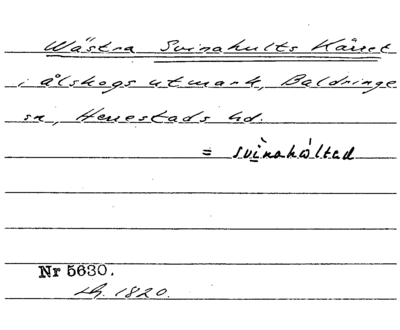 Wästra Svinahults Kärret
i ålskogs utmark, Baldringe
sn, Herrestads hd.
= svìnahὰltad
Nr 5630.
Lh. 1820.